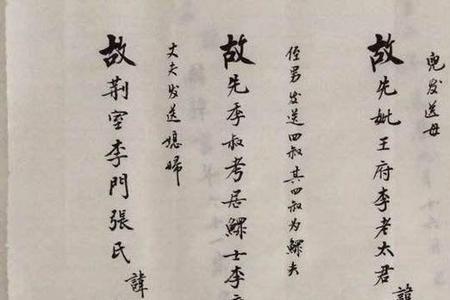 兒发送母
故先妣王府李老太君 諱
侄男发送四叔其四叔为鰥夫
故先季叔考居鰥士李
丈夫发送媳婦
故荆室李門張氏 諱